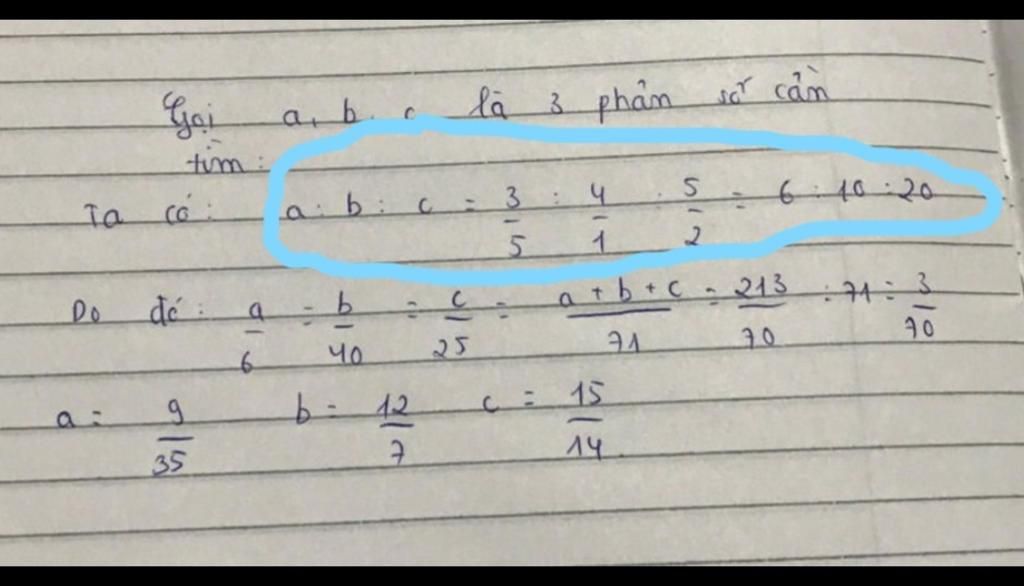 Gọi a, b, c là 3 phân số cần
tìm:
Ta có: a : b : c = 3/5 : 4/1 : 5/2 = 6 : 10 : 20
Do đó: a/6 = b/40 = c/25 = a+b+c/71 = 213/70 : 71 = 3/70
a = 9/35 b = 12/7 c = 15/14